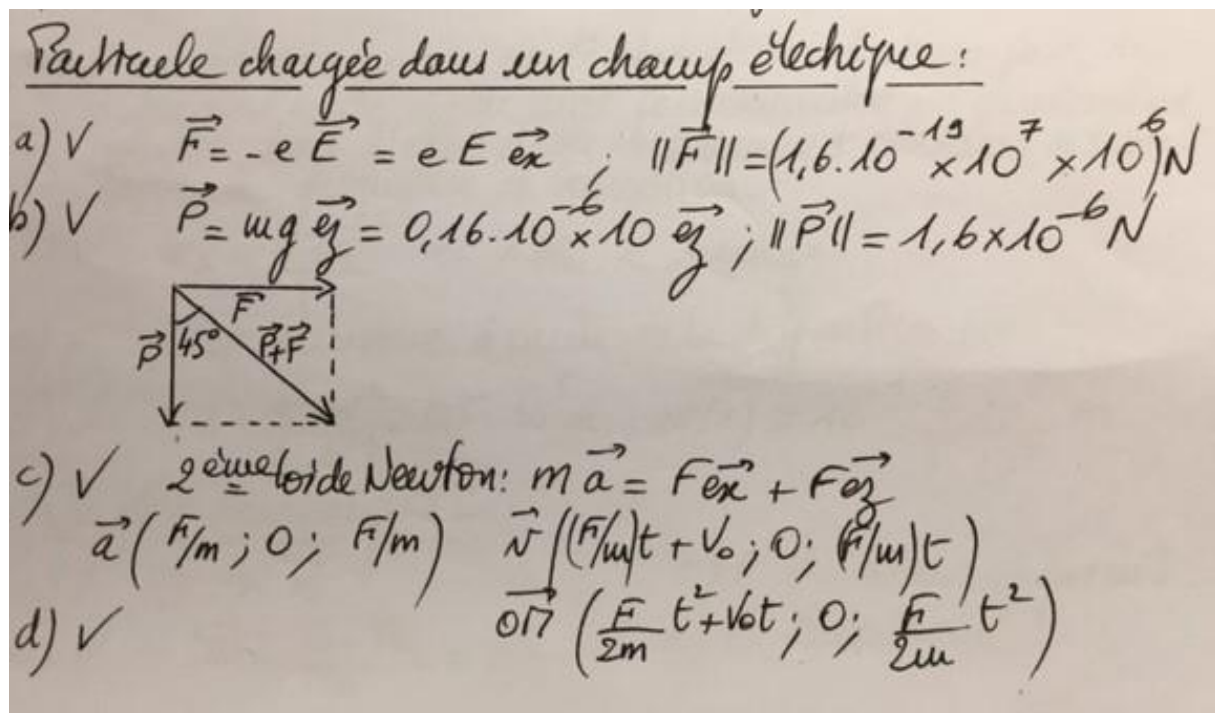 Particule chargée dans un champ électrique :
a) V $\vec{F} = -e\vec{E} = eE\vec{ex}$ ; $||\vec{F}|| = (1,6.10^{-19} \times 10^{7} \times 10^{6}) N$
b) V $\vec{P} = mg\vec{ez} = 0,16.10^{-6} \times 10\,\vec{ez}$ ; $||\vec{P}|| = 1,6 \times 10^{-6} N$
$\vec{F}$
$\vec{P}$ 45° $\vec{P}+\vec{F}$
c) V 2ème loi de Newton : $m\vec{a} = F\vec{ex} + F\vec{ez}$
$\vec{a}(F/m ; 0 ; F/m)$ $\vec{v}((F/m)t + V_0 ; 0 ; (F/m)t)$
d) V $\vec{OM}(\frac{F}{2m}t^2 + V_0t ; 0 ; \frac{F}{2m}t^2)$